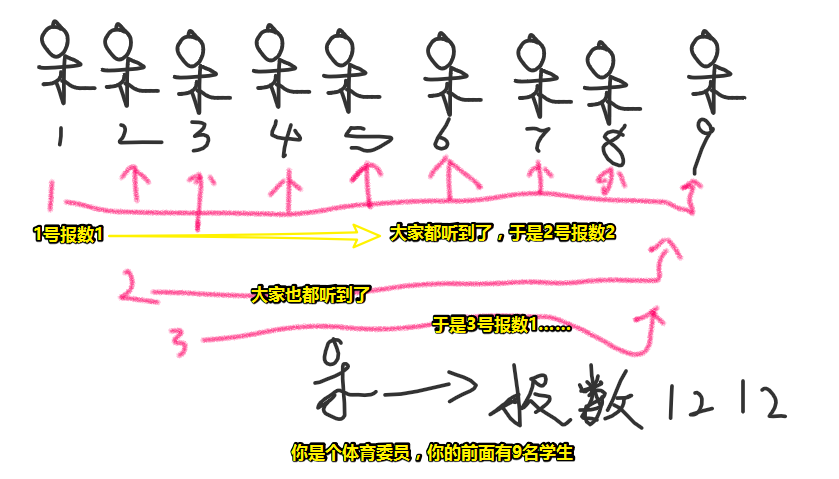 1 2 3 4 5 6 7 8 9
1
1号报数1 大家都听到了，于是2号报数2
2 大家也都听到了
3 于是3号报数1……
报数 1 2 1 2
你是个体育委员，你的前面有9名学生